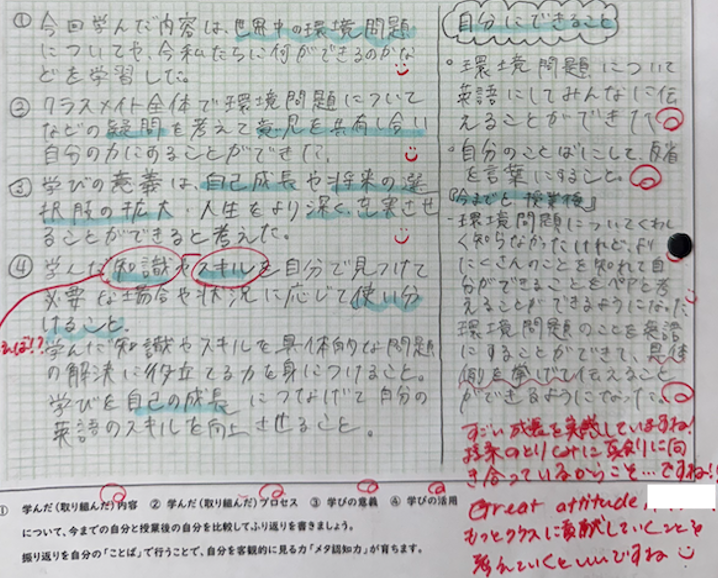 ① 今回学んだ内容は、世界中の環境問題
についてや、今私たちに何ができるのかな
どを学習した。
② クラスメイト全体で環境問題について
などの疑問を考えて意見を共有し合い
自分の力にすることができた。
③ 学びの意義は、自己成長や将来の選
択肢の拡大・人生をより深く、充実させ
ることができると考えた。
④ 学んだ知識やスキルを自分で見つけて
必要な場合や状況に応じて使い分
けること。
えば!?
学んだ知識やスキルを具体的な問題
の解決に役立てる力を身につけること。
学びを自己の成長につなげて自分の
英語のスキルを向上させること。
自分にできること
・環境問題について
英語にしてみんなに伝
えることができた。
・自分のことばにして、反省
を言葉にすること。
『今までと授業後』
・環境問題についてくわし
く知らなかったけれど、より
にくさんのことを知れて自
分ができることをペアと考
えることができるようになった。
環境問題のことを英語
にすることができて、具体
例を挙げて伝えること
ができるようになった。
すごい成長を実感していますね!
授業のとりくみに真剣に向
き合っているからこそ…ですね!!
Great attitude,
もっとクラスに貢献していくことも
考えていくといいですね
① 学んだ(取り組んだ)内容 ② 学んだ(取り組んだ)プロセス ③ 学びの意義 ④ 学びの活用
について、今までの自分と授業後の自分を比較してふり返りを書きましょう。
振り返りを自分の「ことば」で行うことで、自分を客観的に見る力「メタ認知力」が育ちます。